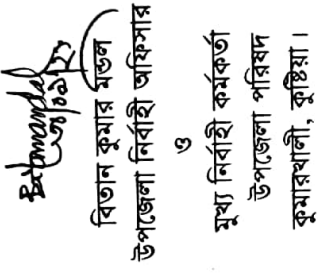 বিতান কুমার মন্ডল
উপজেলা নির্বাহী অফিসার
ও
মুখ্য নির্বাহী কর্মকর্তা
উপজেলা পরিষদ
কুমারখালী, কুষ্টিয়া।